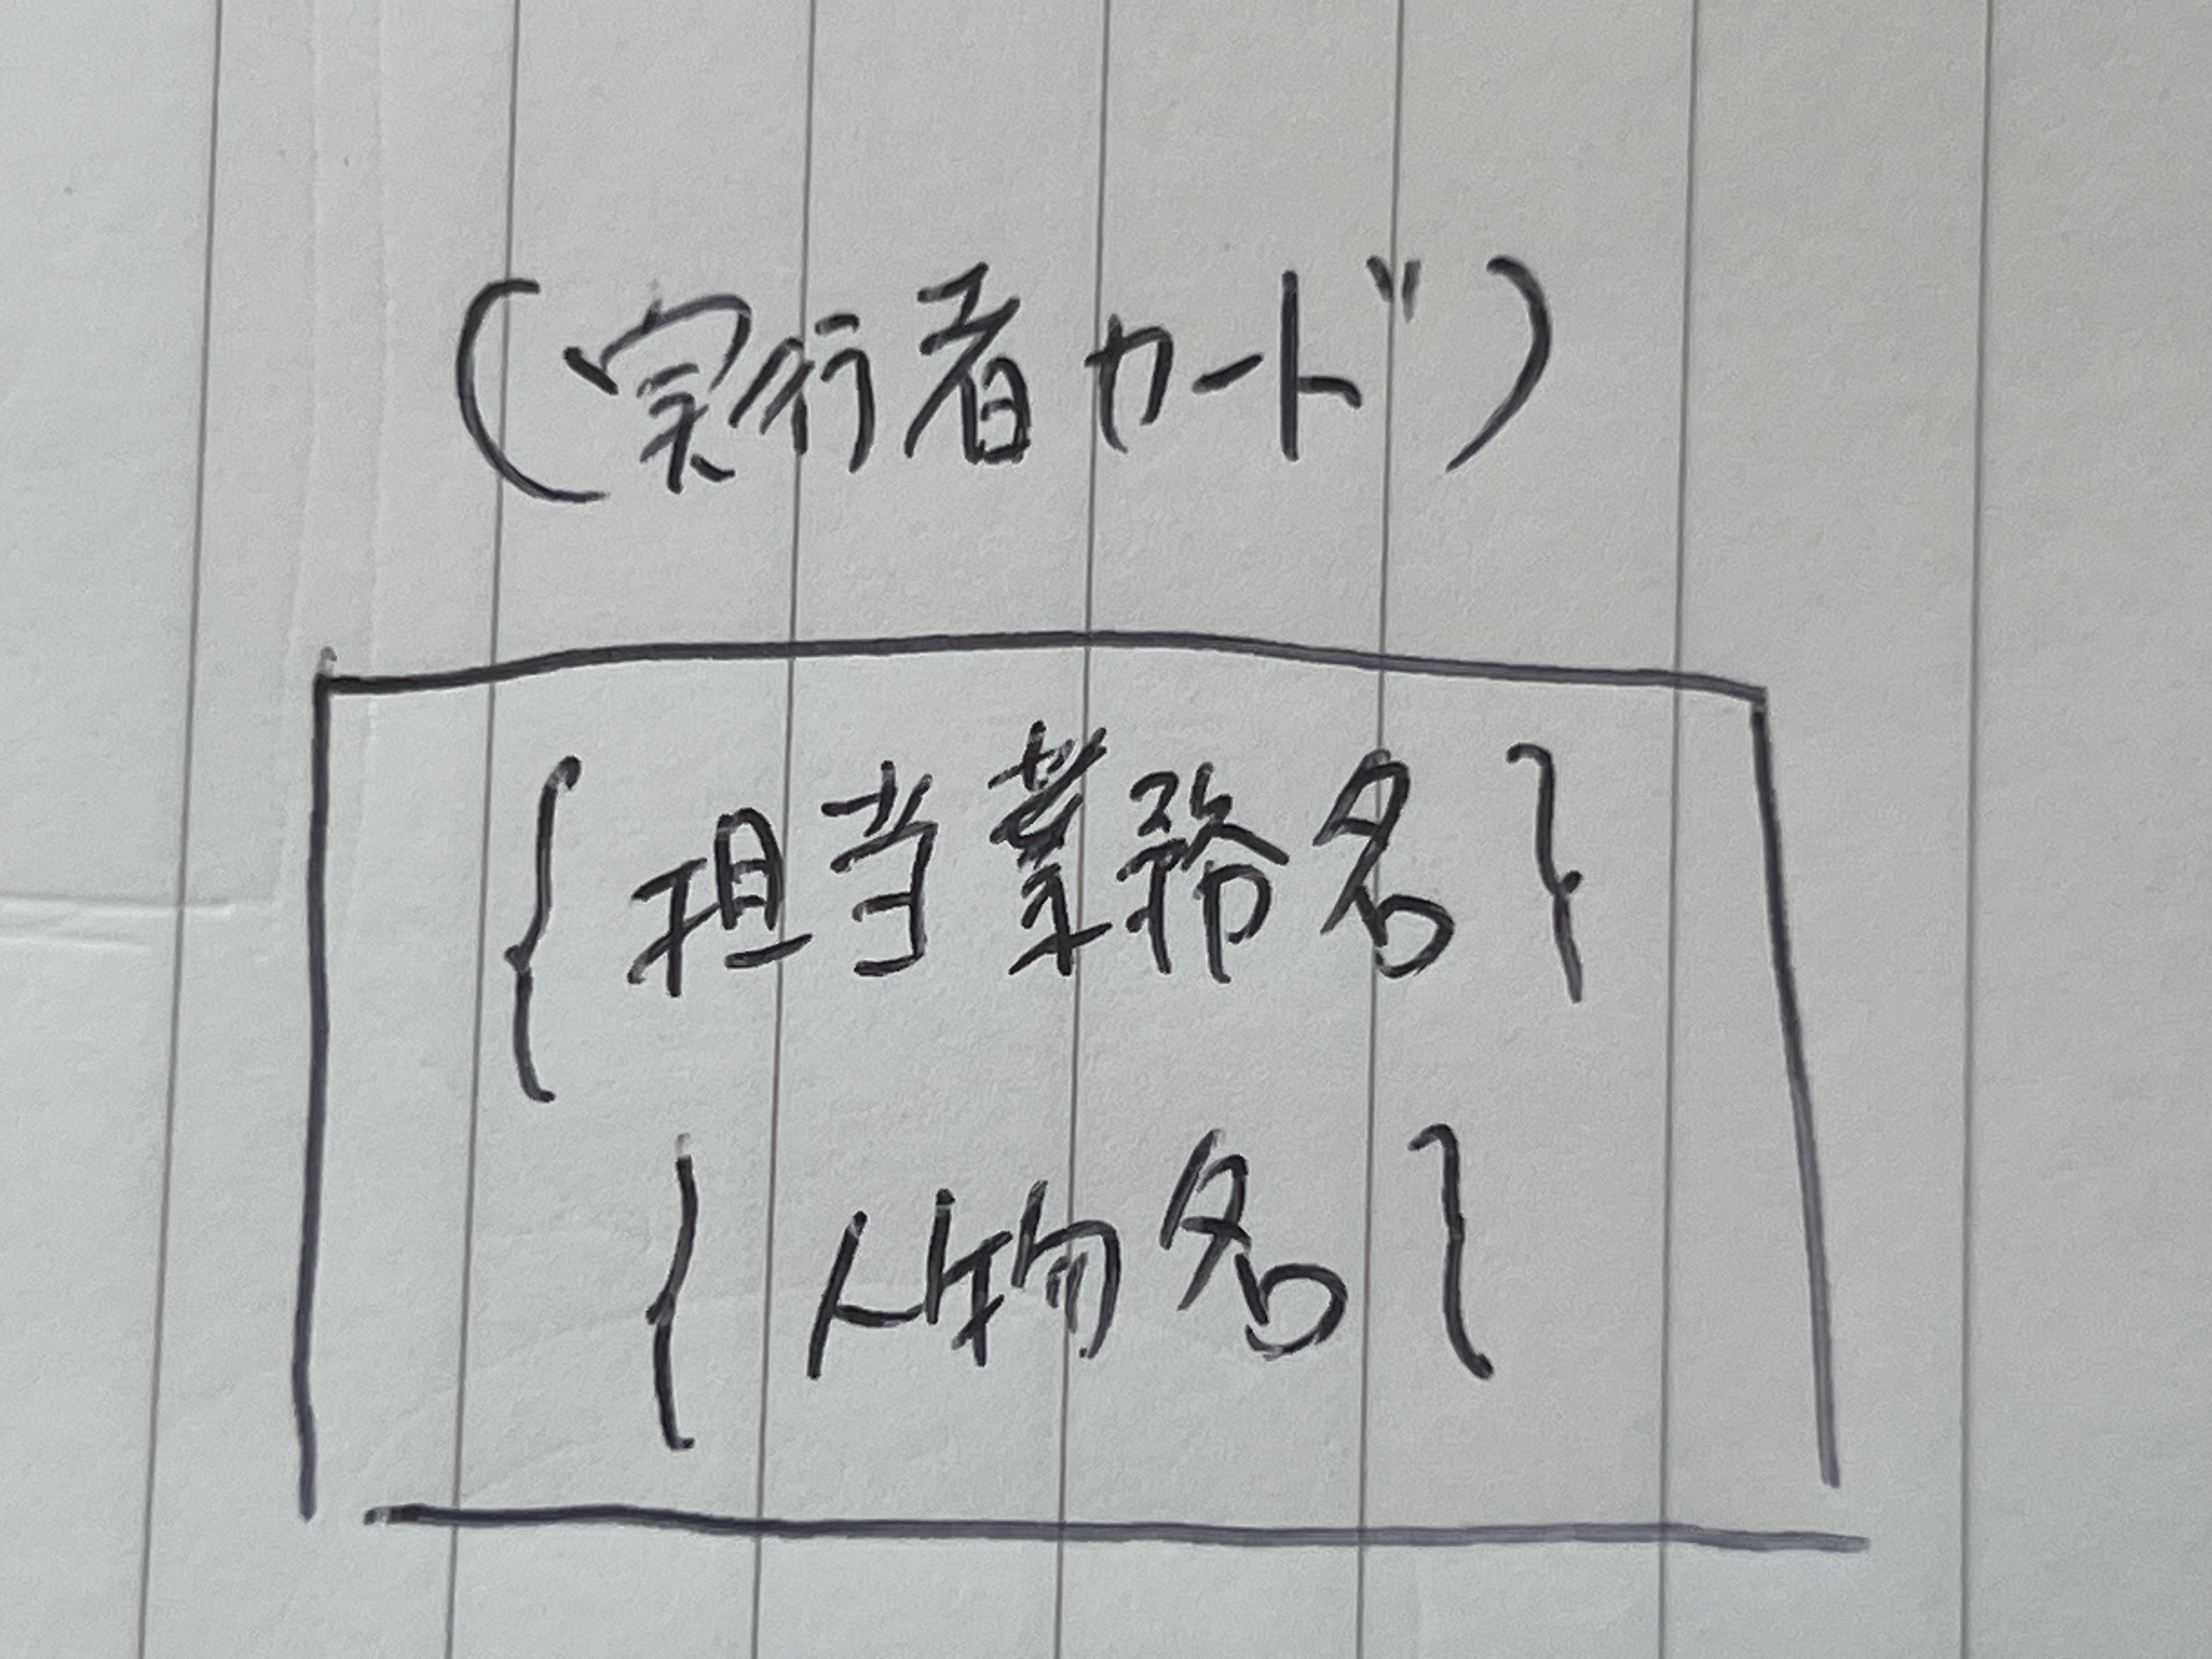 (実行者カード)
{担当業務名}
{人物名}